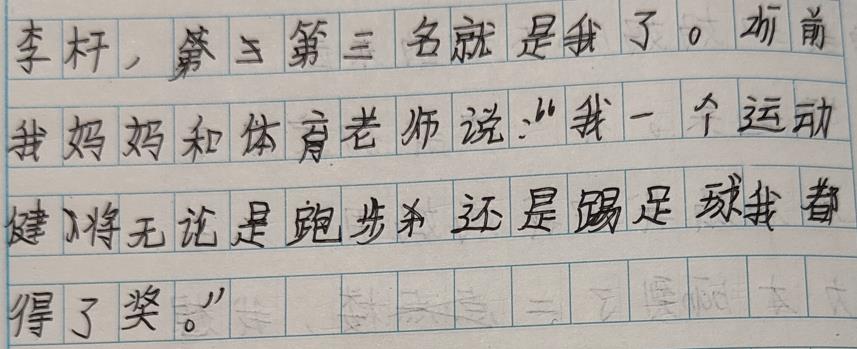 李杆，第三名就是我了。所前
我妈妈和体育老师说：“我一个运动
健将无论是跑步还是踢足球我都
得了奖。”